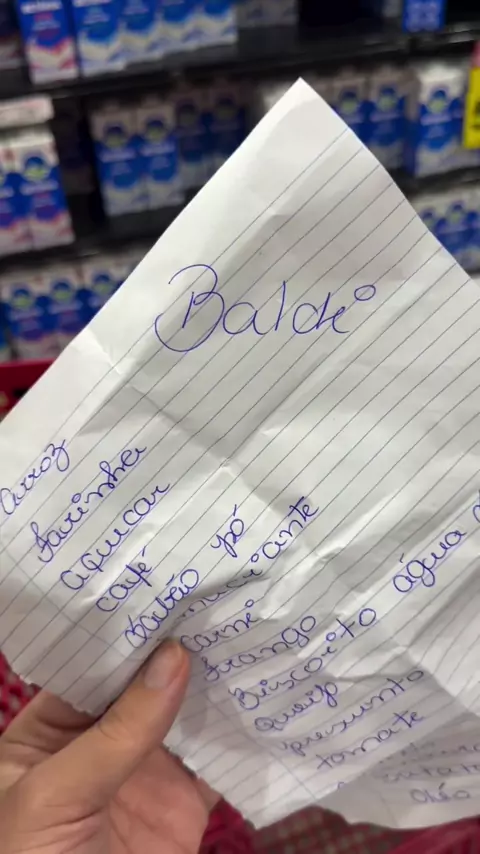 Balde
Arroz
Farinha
açucar
café
Sabão pó
maciante
Carne
Frango
Biscoito água
Queijo
presunto
tomate
Oléo